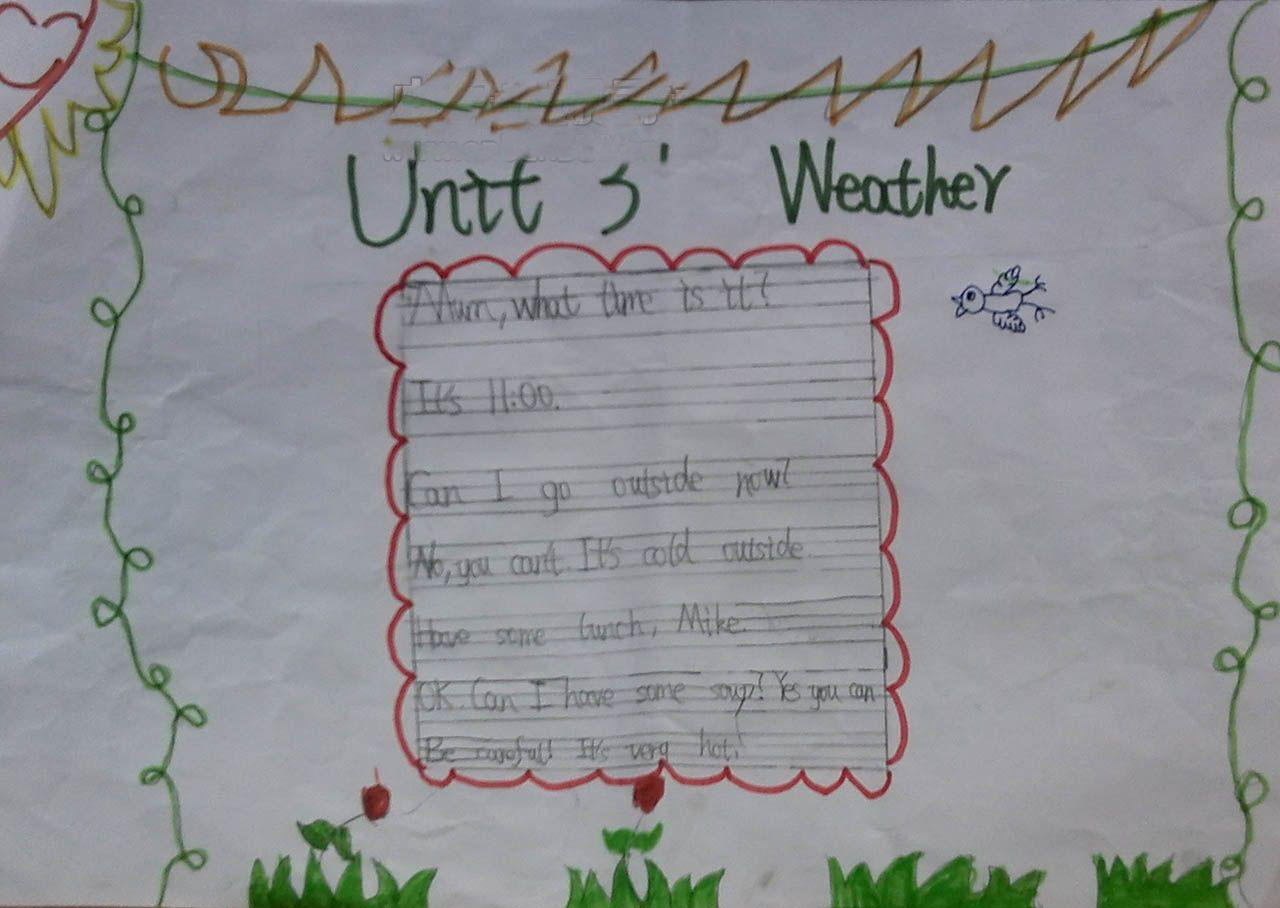 Unit 3' Weather
Mum, what time is it?
It's 11:00.
Can I go outside now?
No, you can't. It's cold outside.
Have some lunch, Mike.
OK. Can I have some soup? Yes you can
Be careful! It's very hot!